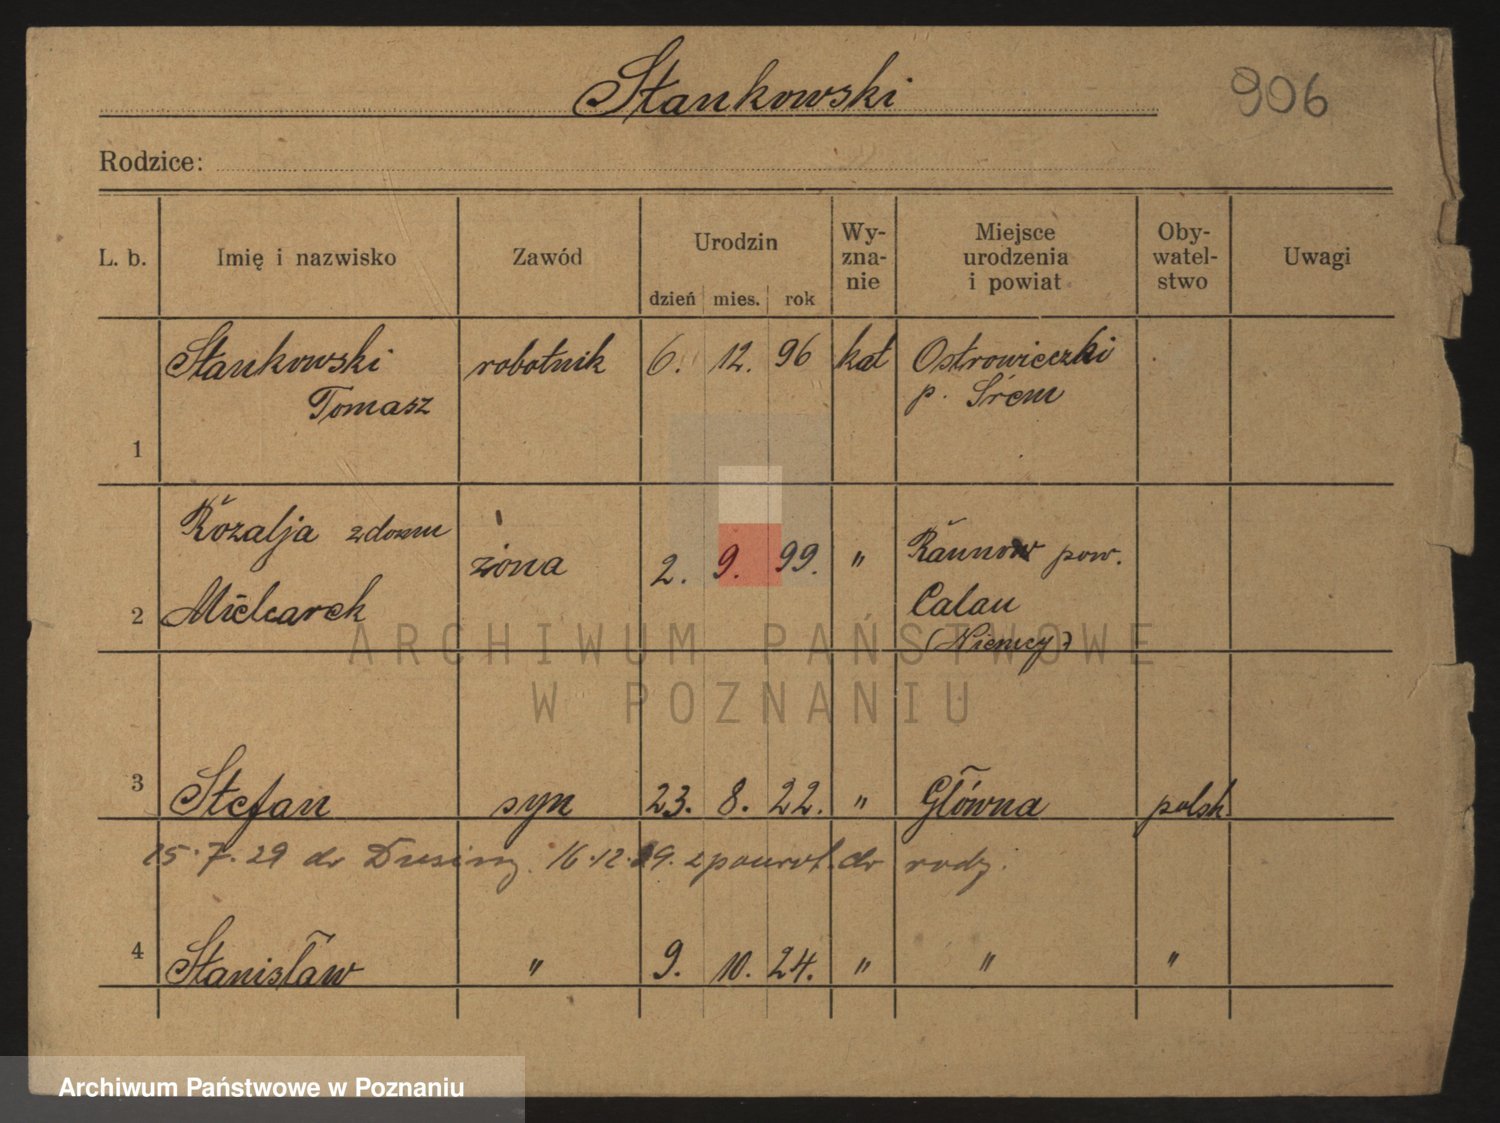 Stankowski
906
Rodzice:
L. b. Imię i nazwisko Zawód Urodzin Wy-zna-nie Miejsce urodzenia i powiat Oby-watel-stwo Uwagi
dzień mies. rok
Stankowski robotnik 6. 12. 96 kat Ostrowieczki
Tomasz p. Śrem
1
Rozalja z domu żona 2. 9. 99. " Raunow pow.
2 Mielcarek Calau
(Niemcy)
3 Stefan syn 23. 8. 22. " Główna polsk.
15.7.29 do 16.12.29. z powrot. do rodz.
4 Stanisław " 9. 10. 24. " " "
ARCHIWUM PAŃSTWOWE
W POZNANIU
Archiwum Państwowe w Poznaniu